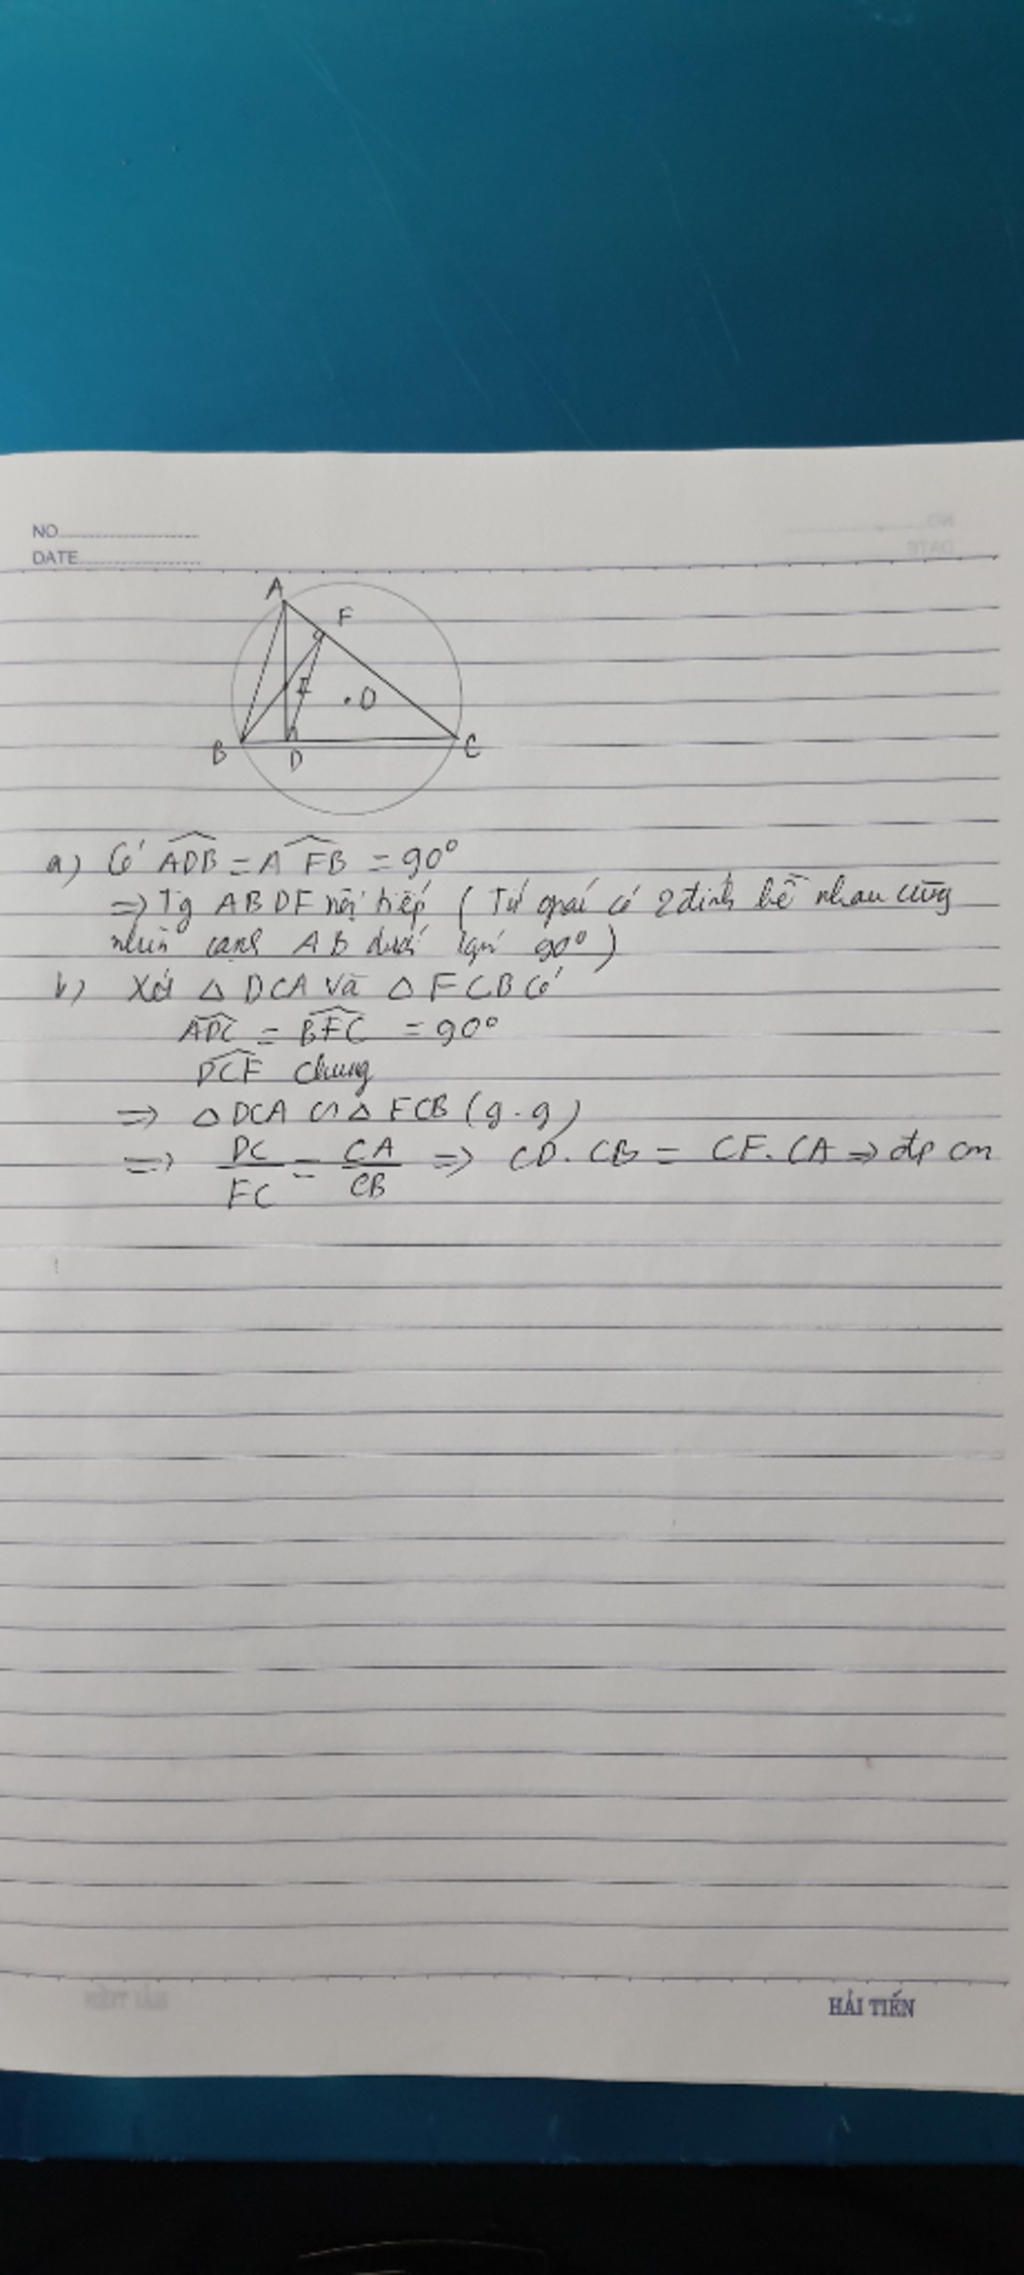 NO
DATE
A
F
E
O
B
D
C
a) Có ADB = AFB = 90°
=> Tg ABDF nội tiếp ( Tứ giác có 2 đỉnh kề nhau cùng
nhìn cạnh AB dưới 90° )
b) Xét △ DCA và △ FCB Có
ADC = BFC = 90°
DCF chung
=> △ DCA ∽ △ FCB (g.g)
=> DC/FC = CA/CB => CD. CB = CF. CA => đpcm
HẢI TIẾN